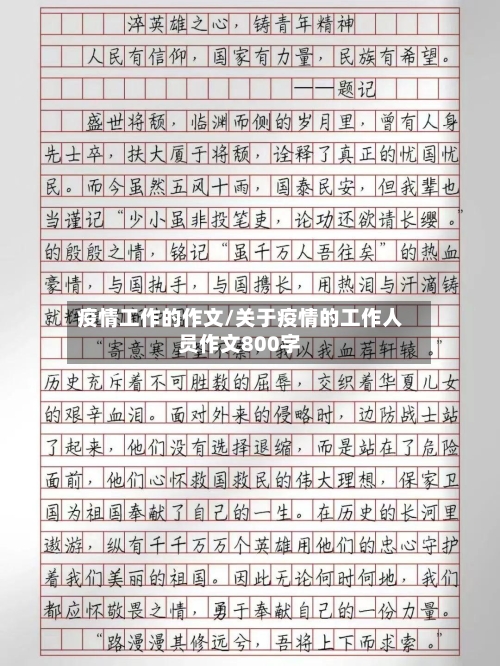 淬英雄之心，铸青年精神
人民有信仰，国家有力量，民族有希望。
——题记
盛世将颓，临渊而侧的岁月里，曾有人身
先士卒，扶大厦于将颓，诠释了真正的忧国忧
民。而今虽然五风十雨，国泰民安，但我辈也
当谨记“少小虽非投笔吏，论功还欲请长缨。”
的殷殷之情，铭记“虽千万人吾往矣”的热血
豪情，与国执手，与国携长，用热泪与汗滴铸
就
疫情工作的作文/关于疫情的工作人
员作文800字
“寄意寒星 我以我血荐轩辕。”
历史充斥着不可胜数的屈辱，交织着华夏儿女
的艰辛血泪。面对外来的侵略时，边防战士站
了起来，他们没有选择退缩，而是站在了危险
面前，他们心怀救国救民的伟大理想，保家卫
国为祖国奉献了自己的一生。在历史的长河里
遨游，纵有千千万万个英雄用他们的忠心守护
着我们美丽的祖国。因此无论何时何地，我们
都应怀敬畏之情，勇于奉献自己的一份力量。
“路漫漫其修远兮，吾将上下而求索。”